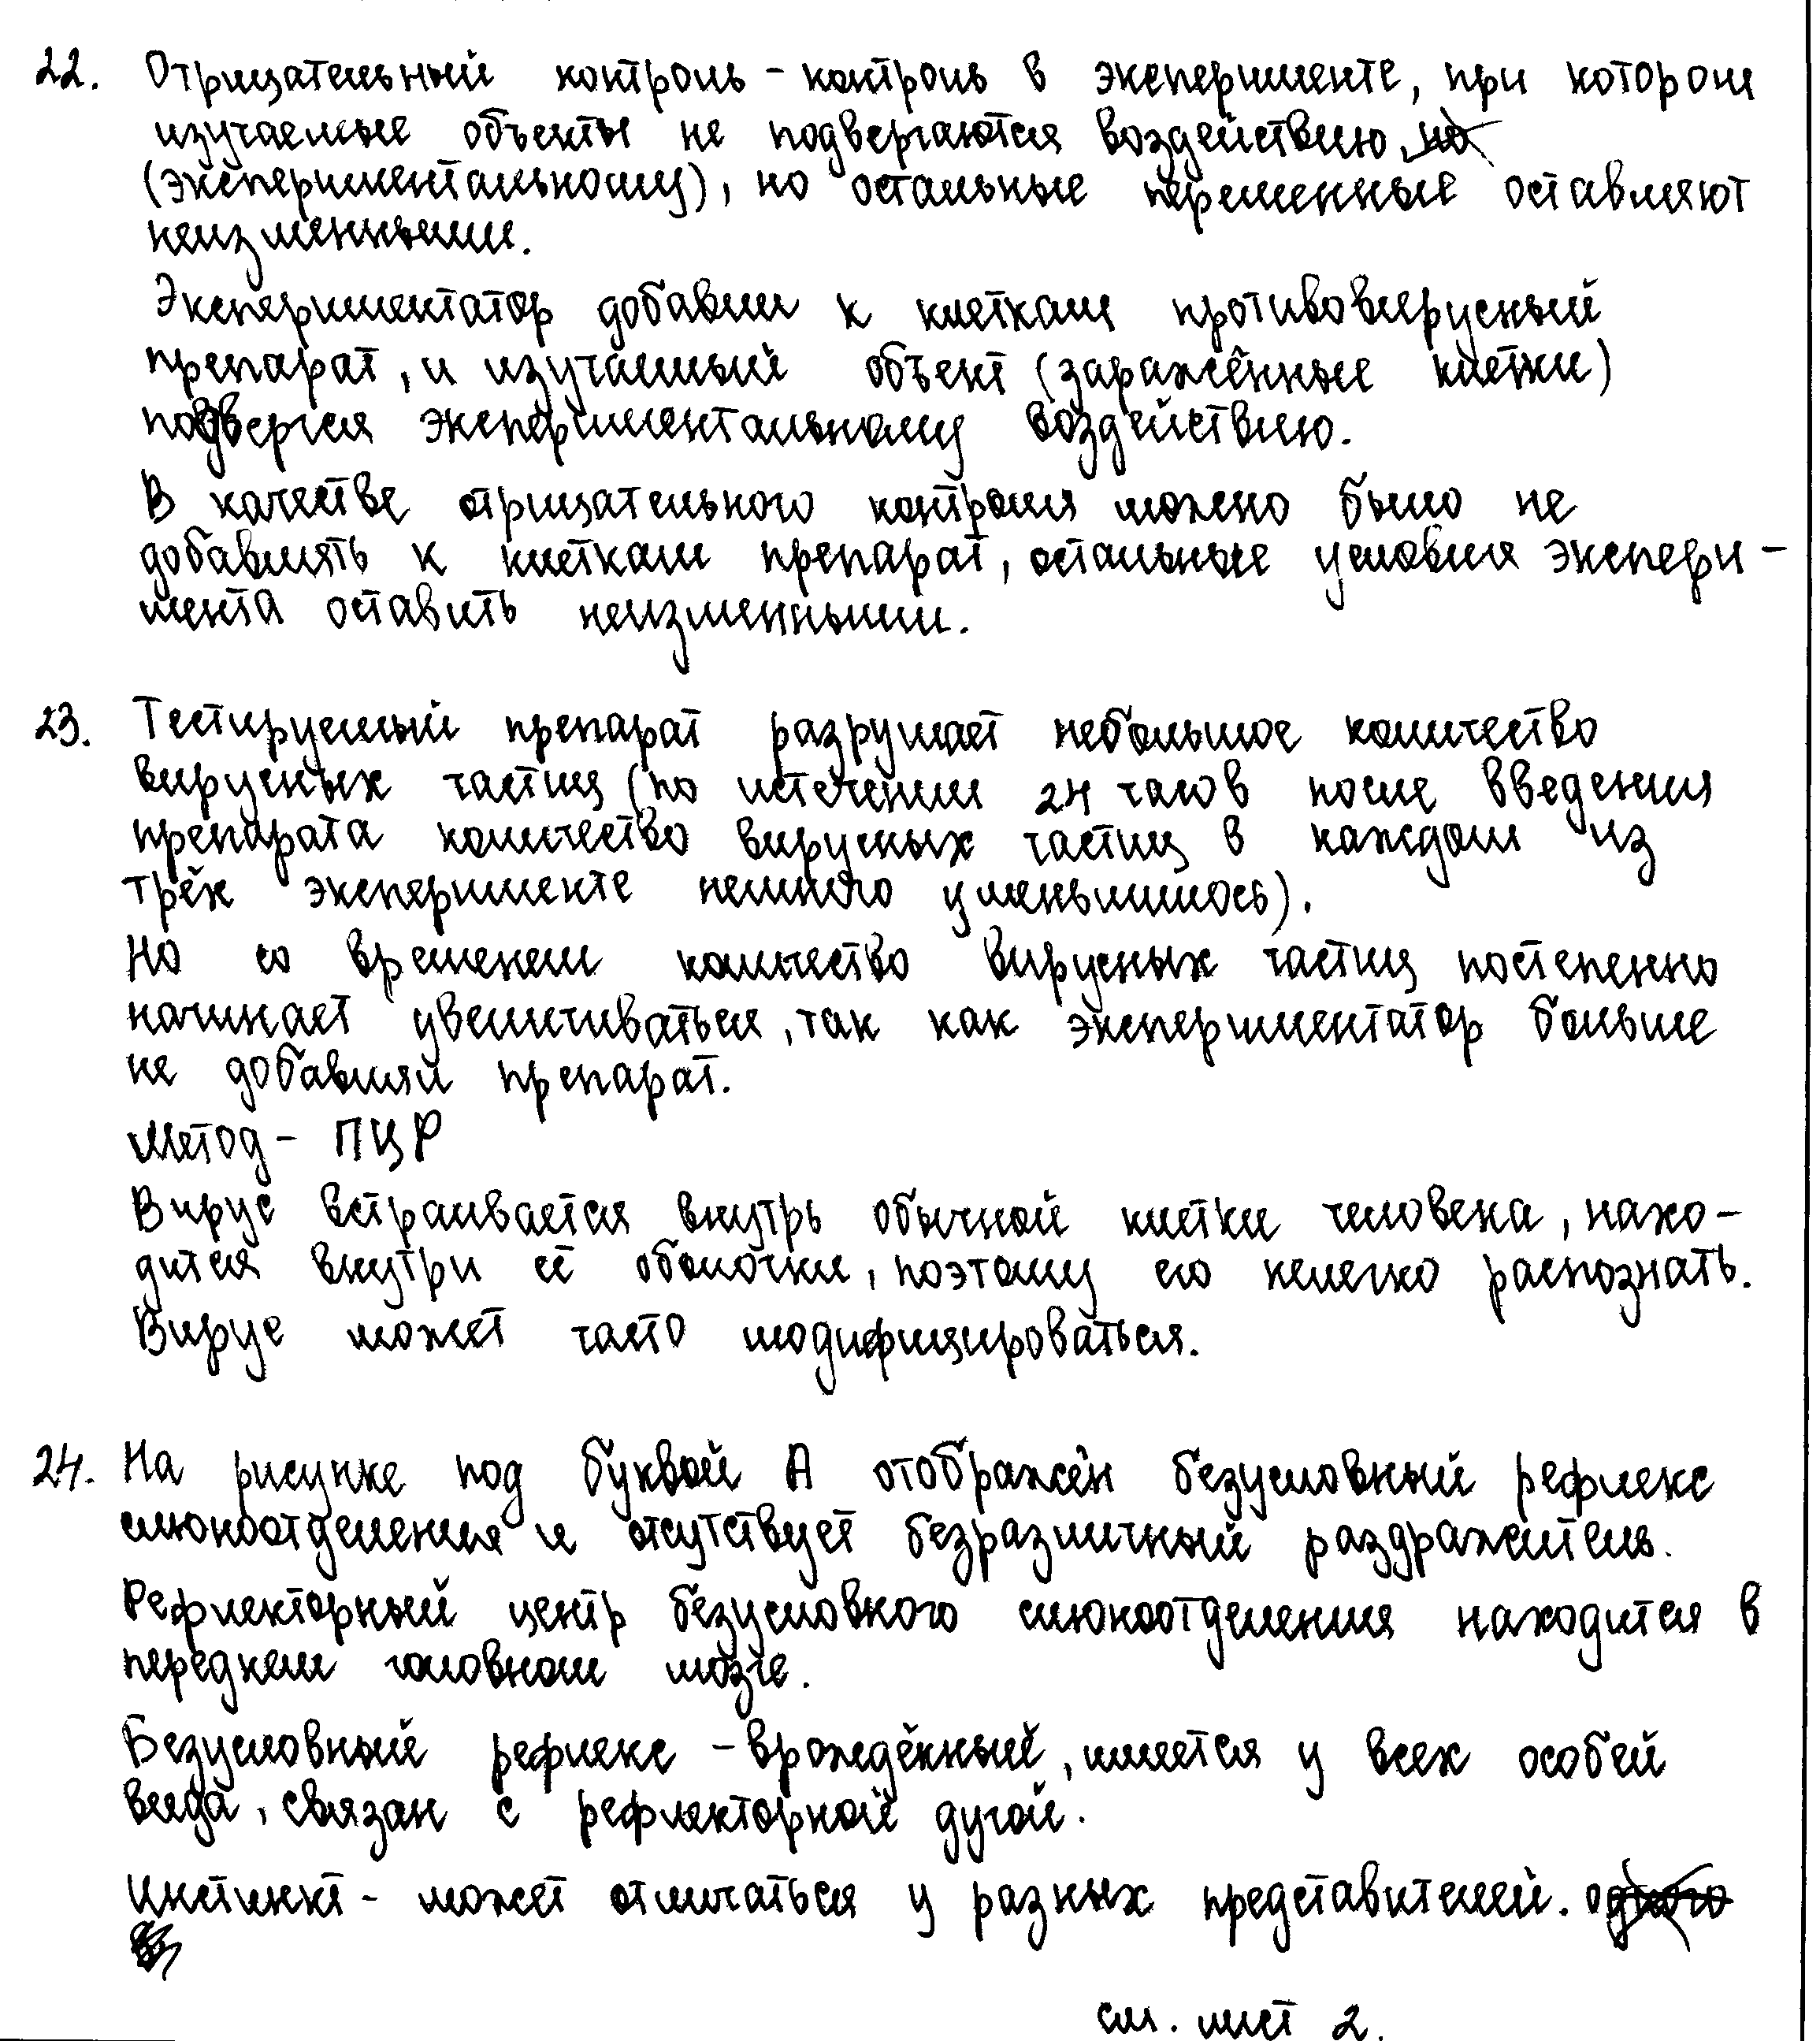 22. Отрицательный контроль - контроль в эксперименте, при котором
изучаемые объекты не подвергаются воздействию, но
(экспериментальному), но остальные переменные оставляют
неизменными.
Экспериментатор добавил к клеткам противовирусный
препарат, и изучаемый объект (заражённые клетки)
подвергся экспериментальному воздействию.
В качестве отрицательного контроля можно было не
добавлять к клеткам препарат, остальные условия экспери-
мента оставить неизменными.
23. Тестируемый препарат разрушает небольшое количество
вирусных частиц (по истечении 24 часов после введения
препарата количество вирусных частиц в каждом из
трёх эксперименте немного уменьшилось).
Но со временем количество вирусных частиц постепенно
начинает увеличиваться, так как экспериментатор больше
не добавлял препарат.
Метод - ПЦР
Вирус встраивается внутрь обычной клетки человека, нахо-
дится внутри её оболочки, поэтому его нелегко распознать.
Вирус может часто модифицироваться.
24. На рисунке под буквой А отображён безусловный рефлекс
слюноотделения и отсутствует безразличный раздражитель.
Рефлекторный центр безусловного слюноотделения находится в
переднем головном мозге.
Безусловный рефлекс - врождённый, имеется у всех особей
вида, связан с рефлекторной дугой.
Инстинкт - может отличаться у разных представителей. одного
см. лист 2.